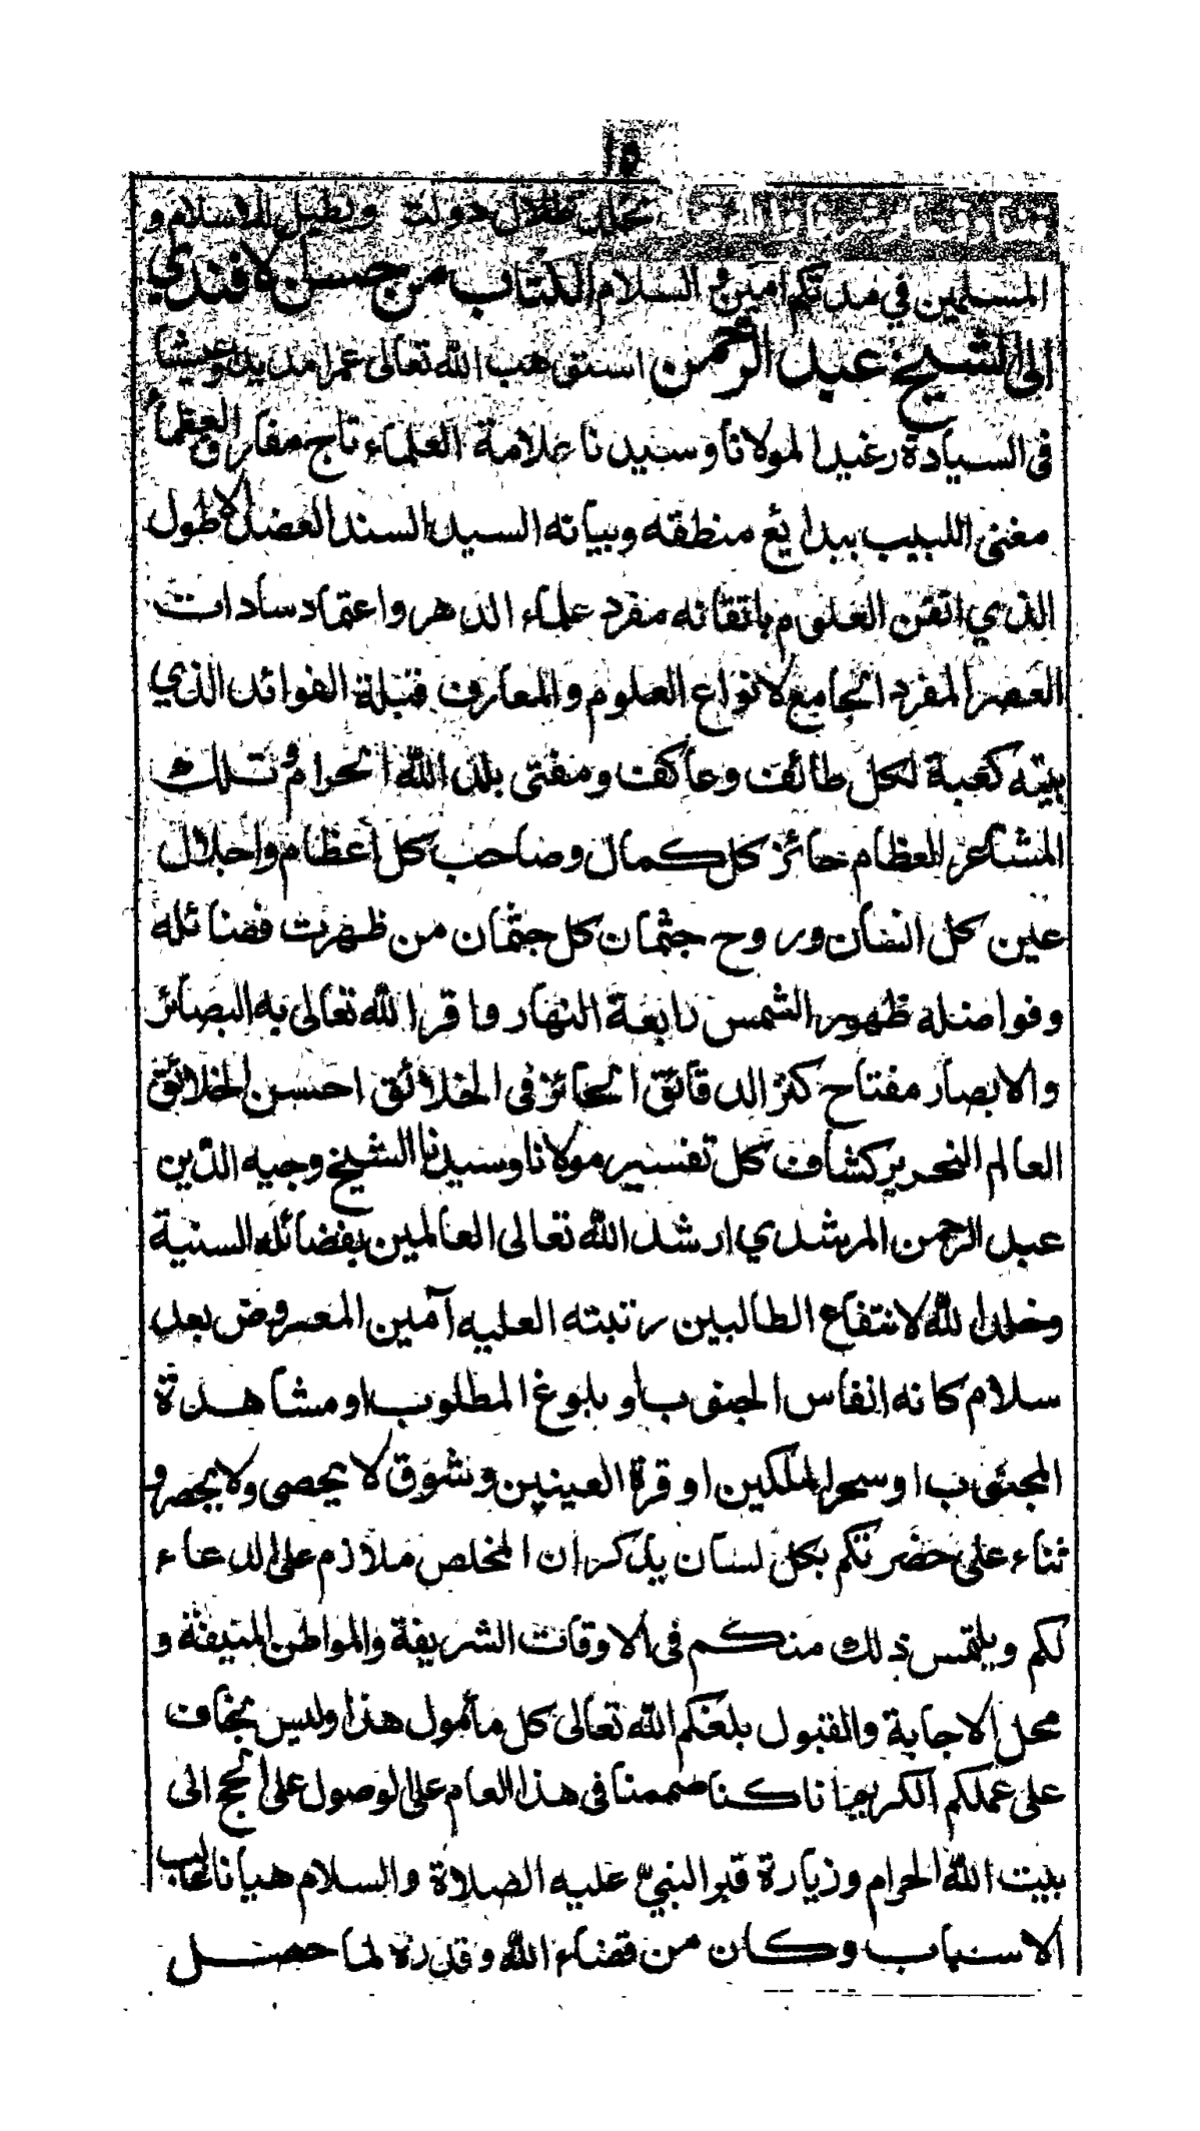 ١٥
ظلال دولت وتظيل للاسلام و
المسلمين في مدتكم آمين والسلام الكتاب من حسن لافندي
الى الشيخ عبد الرحمن استوهب الله تعالى عمرا مديدا وعيشا
في السيادة رغيدا لمولانا وسيدنا علامة العلماء تاج مفارق العظماء
مغني اللبيب ببدايع منطقه وبيانه السيد السند العضد الاطول
الذي اتقن العلوم باتقانه مفرد علماء الدهر واعتماد سادات
العصر المفرد الجامع لانواع العلوم والمعارف قبلة الفوائد الذي
بيته كعبة لكل طائف وعاكف ومفتى بلد الله الحرام وتلك
المشاعر العظام حائز كل كمال وصاحب كل اعظام واجلال
عين كل انسان وروح جثمان كل جثمان من ظهرت فضائله
وفواضله ظهور الشمس رابعة النهار واقر الله تعالى به البصائر
والابصار مفتاح كنز الدقائق الحائز في الخلائق احسن الخلائق
العالم النحرير كشاف كل تفسير مولانا وسيدنا الشيخ وجيه الدين
عبد الرحمن المرشدي ارشد الله تعالى العالمين بفضائله السنية
وخلد الله لانتفاع الطالبين رتبته العليه آمين المعروض بعد
سلام كانه انفاس الجنوب او بلوغ المطلوب او مشاهدة
المحبوب او سحر الملكين او قرة العينين وشوق لا يحصى ولا يحصر و
ثناء على حضرتكم بكل لسان يذكر ان المخلص ملازم على الدعاء
لكم ويلتمس ذلك منكم في الاوقات الشريفة والمواطن المنيفة و
محل الاجابة والقبول بلغكم الله تعالى كل مأمول هذا وليس بخاف
على عملكم الكريم انا كنا صممنا في هذا العام على الوصول على الحج الى
بيت الله الحرام وزيارة قبر النبي عليه الصلاة والسلام هيانا غالب
الاسباب وكان من قضاء الله وقدره لما حصل